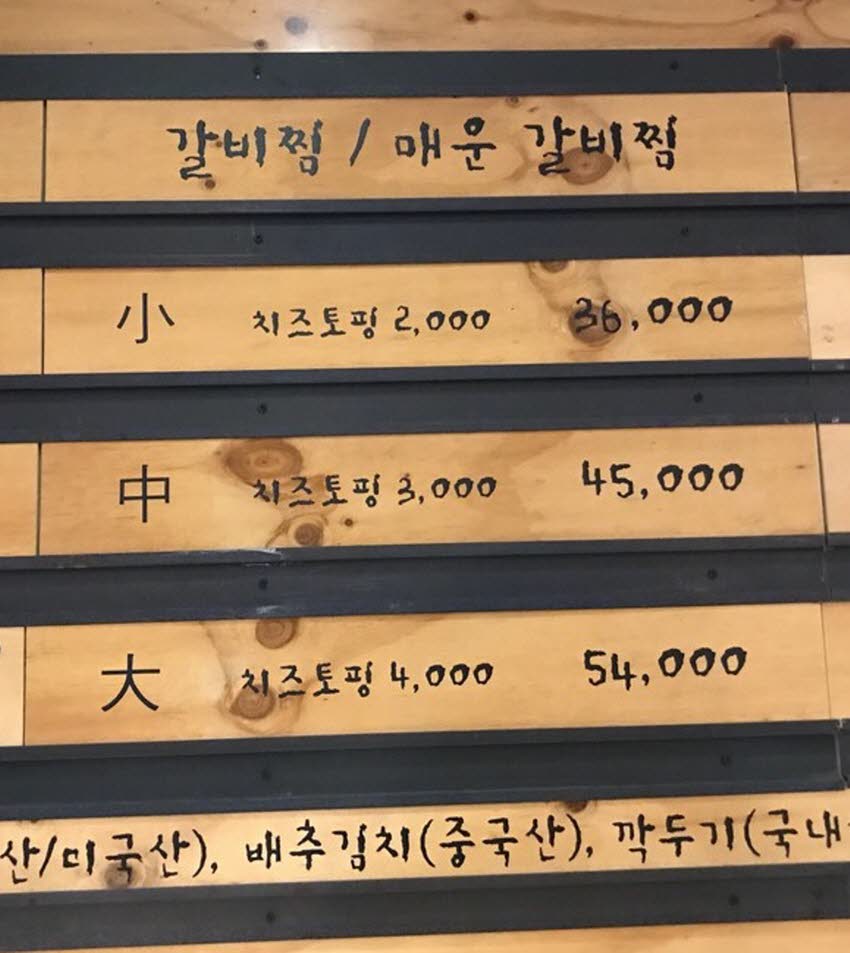 갈비찜 / 매운 갈비찜
小 치즈토핑 2,000 36,000
中 치즈토핑 3,000 45,000
大 치즈토핑 4,000 54,000
산/미국산), 배추김치(중국산), 깍두기(국내